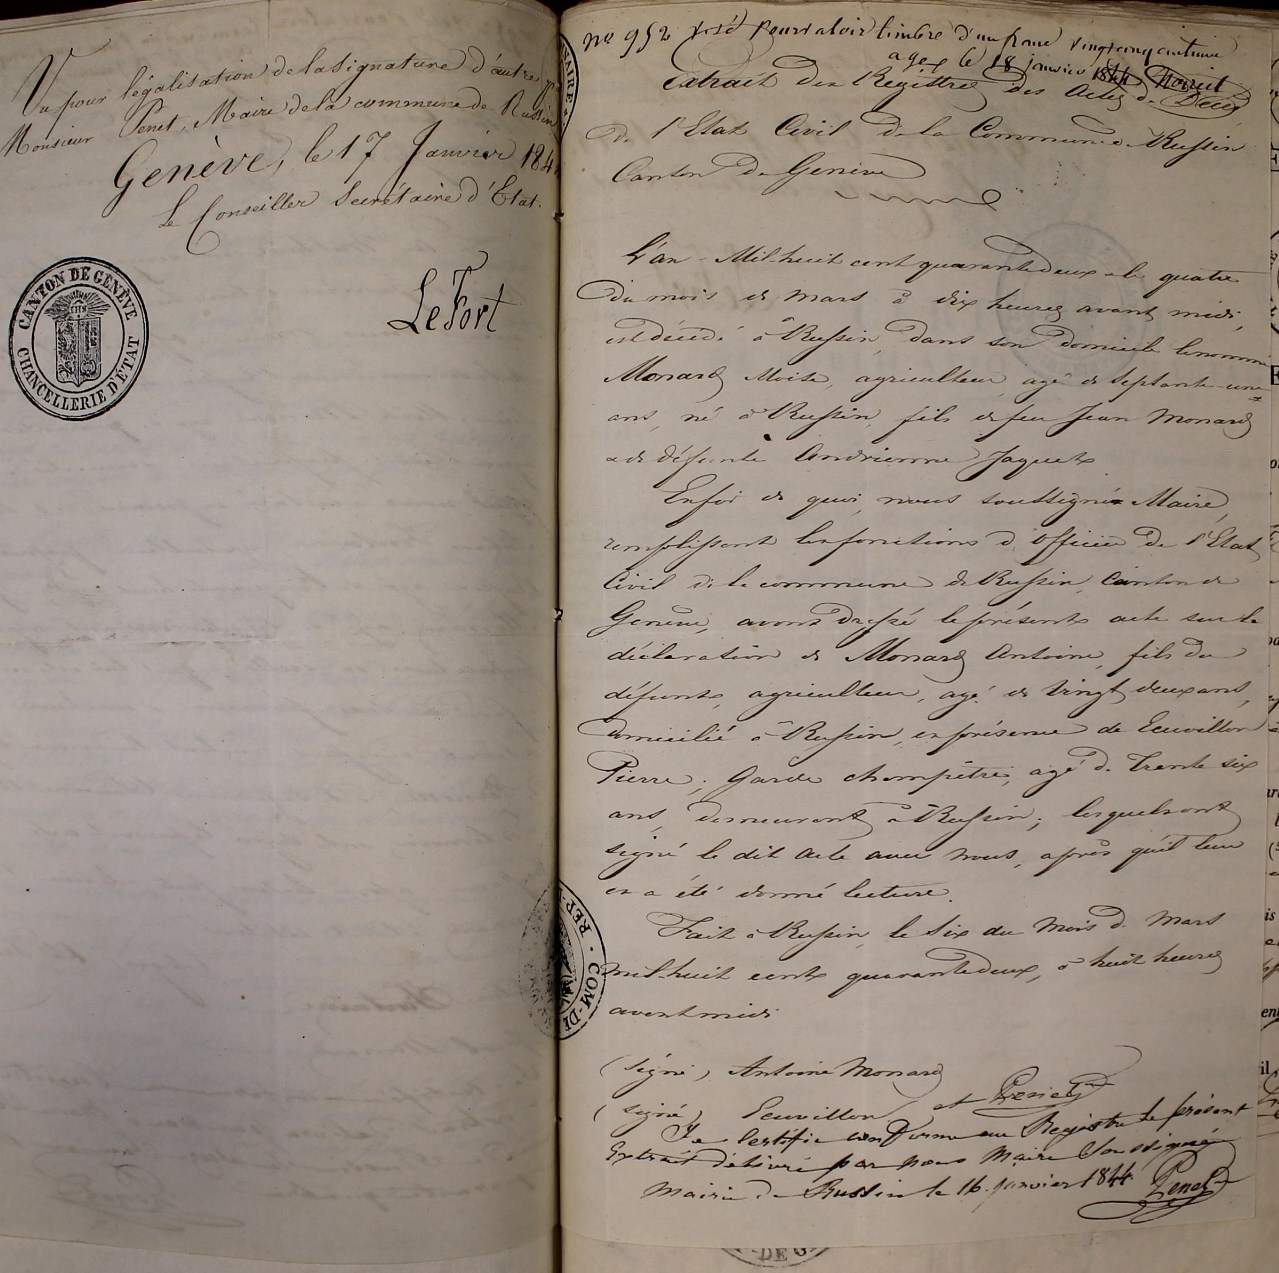 Vu pour légalisation de la signature d'autre part
Monsieur Penet, Maire de la commune de Russin
Genève, le 17 Janvier 184
Le Conseiller Secrétaire d'Etat.
LeFort
CANTON DE GENÈVE
CHANCELLERIE D'ETAT
No 952 visé pour valoir timbre d'un franc vingt cinq centimes
a Gex le 18 janvier 1844
Extrait des Registres des Actes de Décès
de l'Etat Civil de la Commune de Russin
Canton de Genève
L'an Mil huit cent quarante deux & le quatre
du mois de mars à dix heures avant midi,
est décédé à Russin, dans son domicile le nommé
Monard Moïse, agriculteur, agé de septante-une
ans, né à Russin, fils de feu Jean Monard
& de défunte Andrienne Jaquet
En foi de quoi, nous soussigné Maire,
remplissant les fonctions d'officier de l'Etat
Civil de la commune de Russin, Canton de
Genève, avons dressé le présent acte sur la
déclaration de Monard Antoine, fils du
défunt, agriculteur, agé de vingt deux ans,
domicilié à Russin, en présence de Ecuvillon
Pierre, Garde champêtre, agé de trente six
ans, demeurant à Russin; lesquels ont
signé le dit acte avec nous, après qu'il leur
en a été donné lecture.
Fait à Russin, le six du Mois de Mars
mil huit cent quarante deux, à huit heures
avant midi
(signé) Antoine Monard
(signé) Ecuvillon et Penet
Je Certifie conforme au Registre le présent
Extrait délivré par nous Maire Soussigné
Mairie de Russin le 16 janvier 1844 Penet
REP-
COM-DE
-DE G